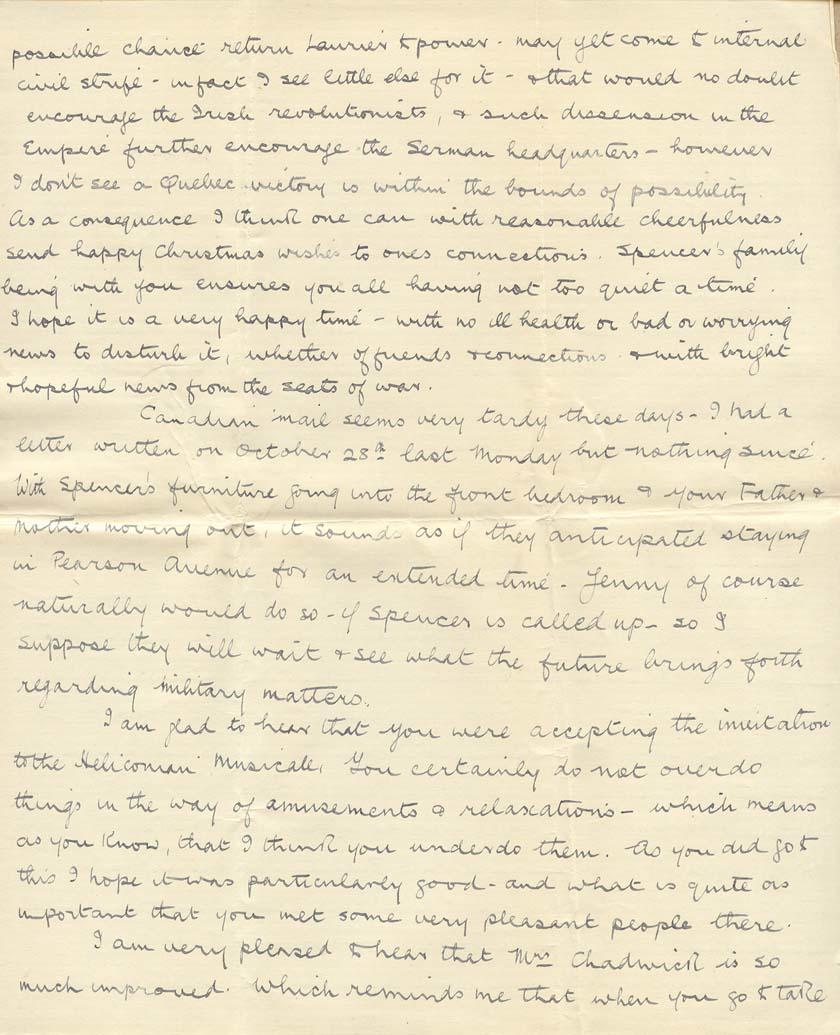 possible chance return Laurier to power - may yet come to internal
civil strife - in fact I see little else for it - & that would no doubt
encourage the Irish revolutionists, & such dissension in the
Empire further encourage the German headquarters - however
I don't see a Quebec victory is within the bounds of possibility.
As a consequence I think one can with reasonable cheerfulness
send happy Christmas wishes to ones connections. Spencer's family
being with you ensures you all having not too quiet a time.
I hope it is a very happy time - with no ill health or bad or worrying
news to disturb it, whether of friends & connections & with bright
& hopeful news from the seats of war.
Canadian mail seems very tardy these days - I had a
letter written on October 28th last Monday but nothing since.
With Spencer's furniture going into the front bedroom & your Father &
Mother moving out, it sounds as if they anticipated staying
in Pearson Avenue for an extended time - Jenny of course
naturally would do so - if Spencer is called up - so I
suppose they will wait & see what the future brings forth
regarding military matters.
I am glad to hear that you were accepting the invitation
to the Heliconian Musicale. You certainly do not overdo
things in the way of amusements & relaxations - which means
as you know, that I think you underdo them. As you did go to
this I hope it was particularly good - and what is quite as
important that you met some very pleasant people there.
I am very pleased to hear that Mrs Chadwick is so
much improved. Which reminds me that when you go to take